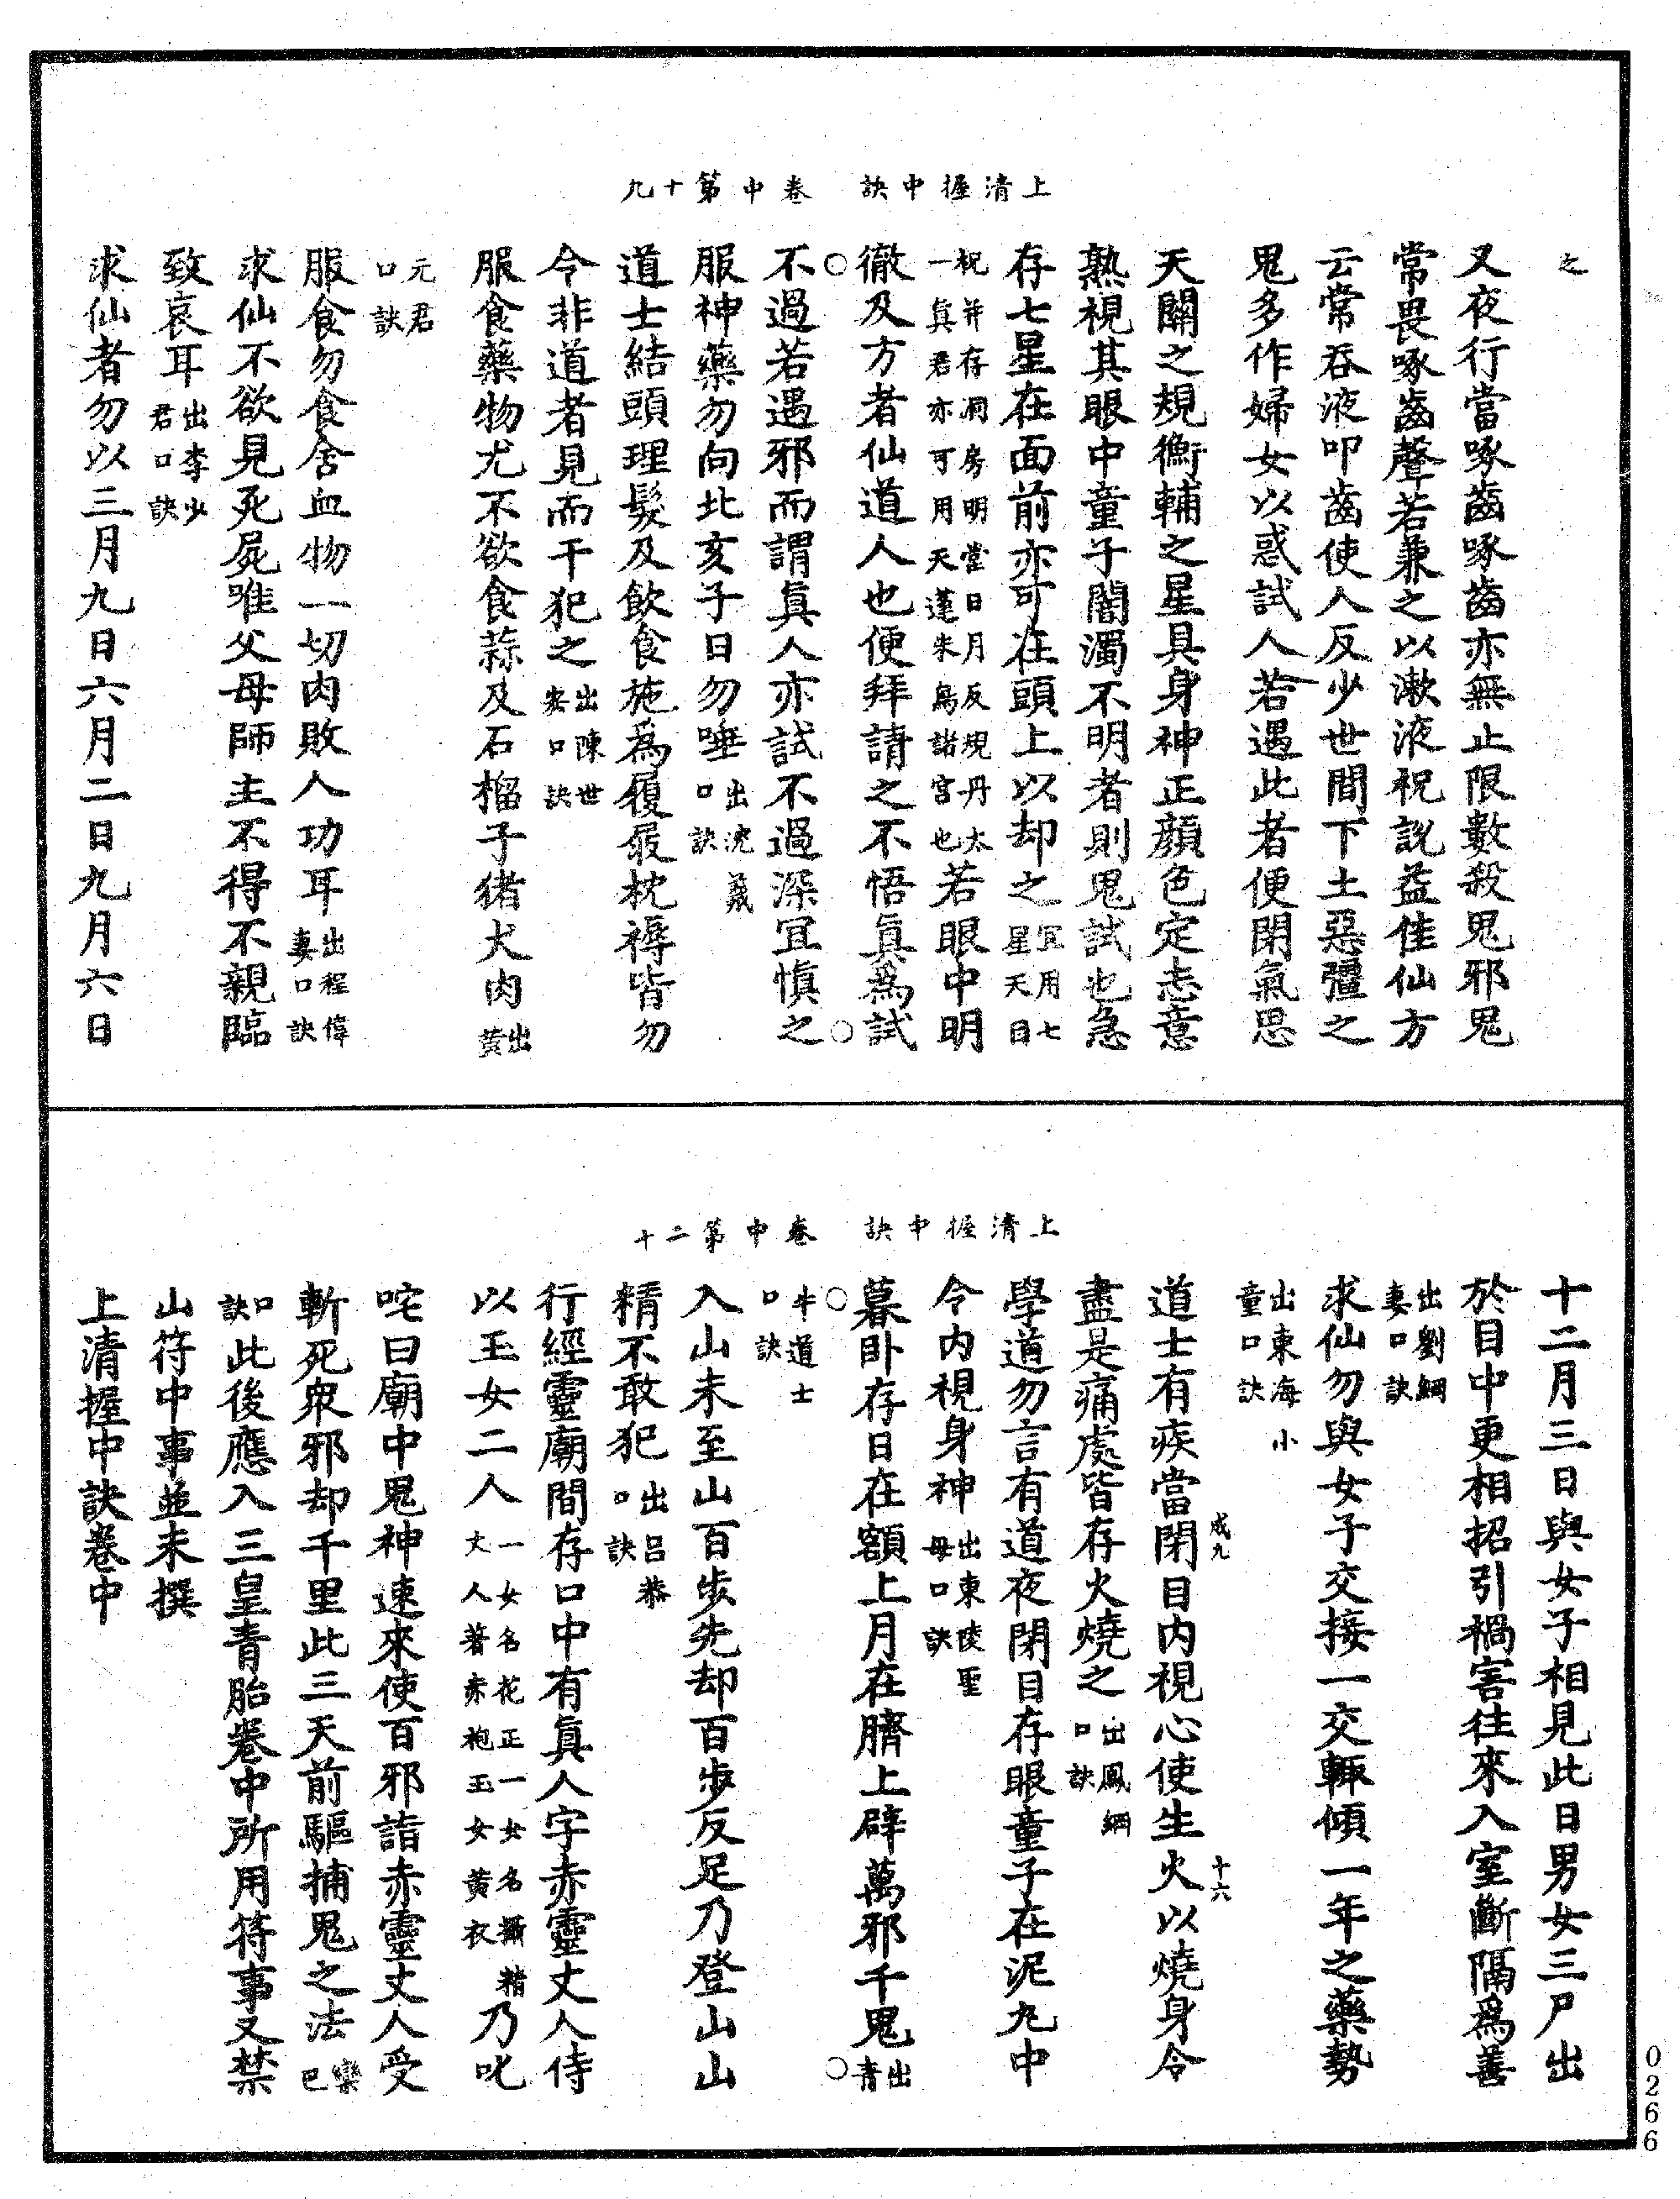 上清握中訣　卷中第十九
之
又夜行當啄齒啄齒亦無止限數殺鬼邪鬼
常畏啄齒聲若兼之以漱液祝說益佳仙方
云常吞液叩齒使人反少世間下土惡彊之
鬼多作婦女以惑試人若遇此者便閉氣思
天關之規衡輔之星具身神正顏色定志意
熟視其眼中童子闇濁不明者則鬼試也急
存七星在面前亦可在頭上以却之宜用七星天日
祝并存洞房明堂日月反規丹太一真君亦可用天蓬朱鳥諸宮也若眼中明
徹及方者仙道人也便拜請之不悟真為試
○不過若遇邪而謂真人亦試不過深宜慎之○
服神藥勿向北亥子日勿唾出沈羲口訣
道士結頭理髮及飲食施為履屐枕褥皆勿
令非道者見而干犯之出陳世安口訣
服食藥物尤不欲食蒜及石榴子猪犬肉出黃
元君口訣
服食勿食含血物一切肉敗人功耳出程偉妻口訣
求仙不欲見死屍唯父母師主不得不親臨
致哀耳出李少君口訣
求仙者勿以三月九日六月二日九月六日
上清握中訣　卷中第二十
十二月三日與女子相見此日男女三尸出
於目中更相招引禍害往來入室斷隔為善
出劉綱妻口訣
求仙勿與女子交接一交輒傾一年之藥勢
出東海小童口訣
道士有疾當閉目內視心使生火以燒身令
盡是痛處皆存火燒之出鳳綱口訣
學道勿言有道夜閉目存眼童子在泥丸中
令內視身神出東陵聖母口訣
○暮卧存日在額上月在臍上辟萬邪千鬼出青○
牛道士口訣
入山未至山百步先却百步反足乃登山山
精不敢犯出呂恭口訣
行經靈廟間存口中有真人字赤靈丈人侍
以玉女二人一女名花正一女名攝精丈人著赤袍玉女黃衣乃叱
咤曰廟中鬼神速來使百邪詣赤靈丈人受
斬死眾邪却千里此三天前驅捕鬼之法欒巴
口訣此後應入三皇青胎卷中所用符事又禁
山符中事並未撰
上清握中訣卷中
成九
十六
0266